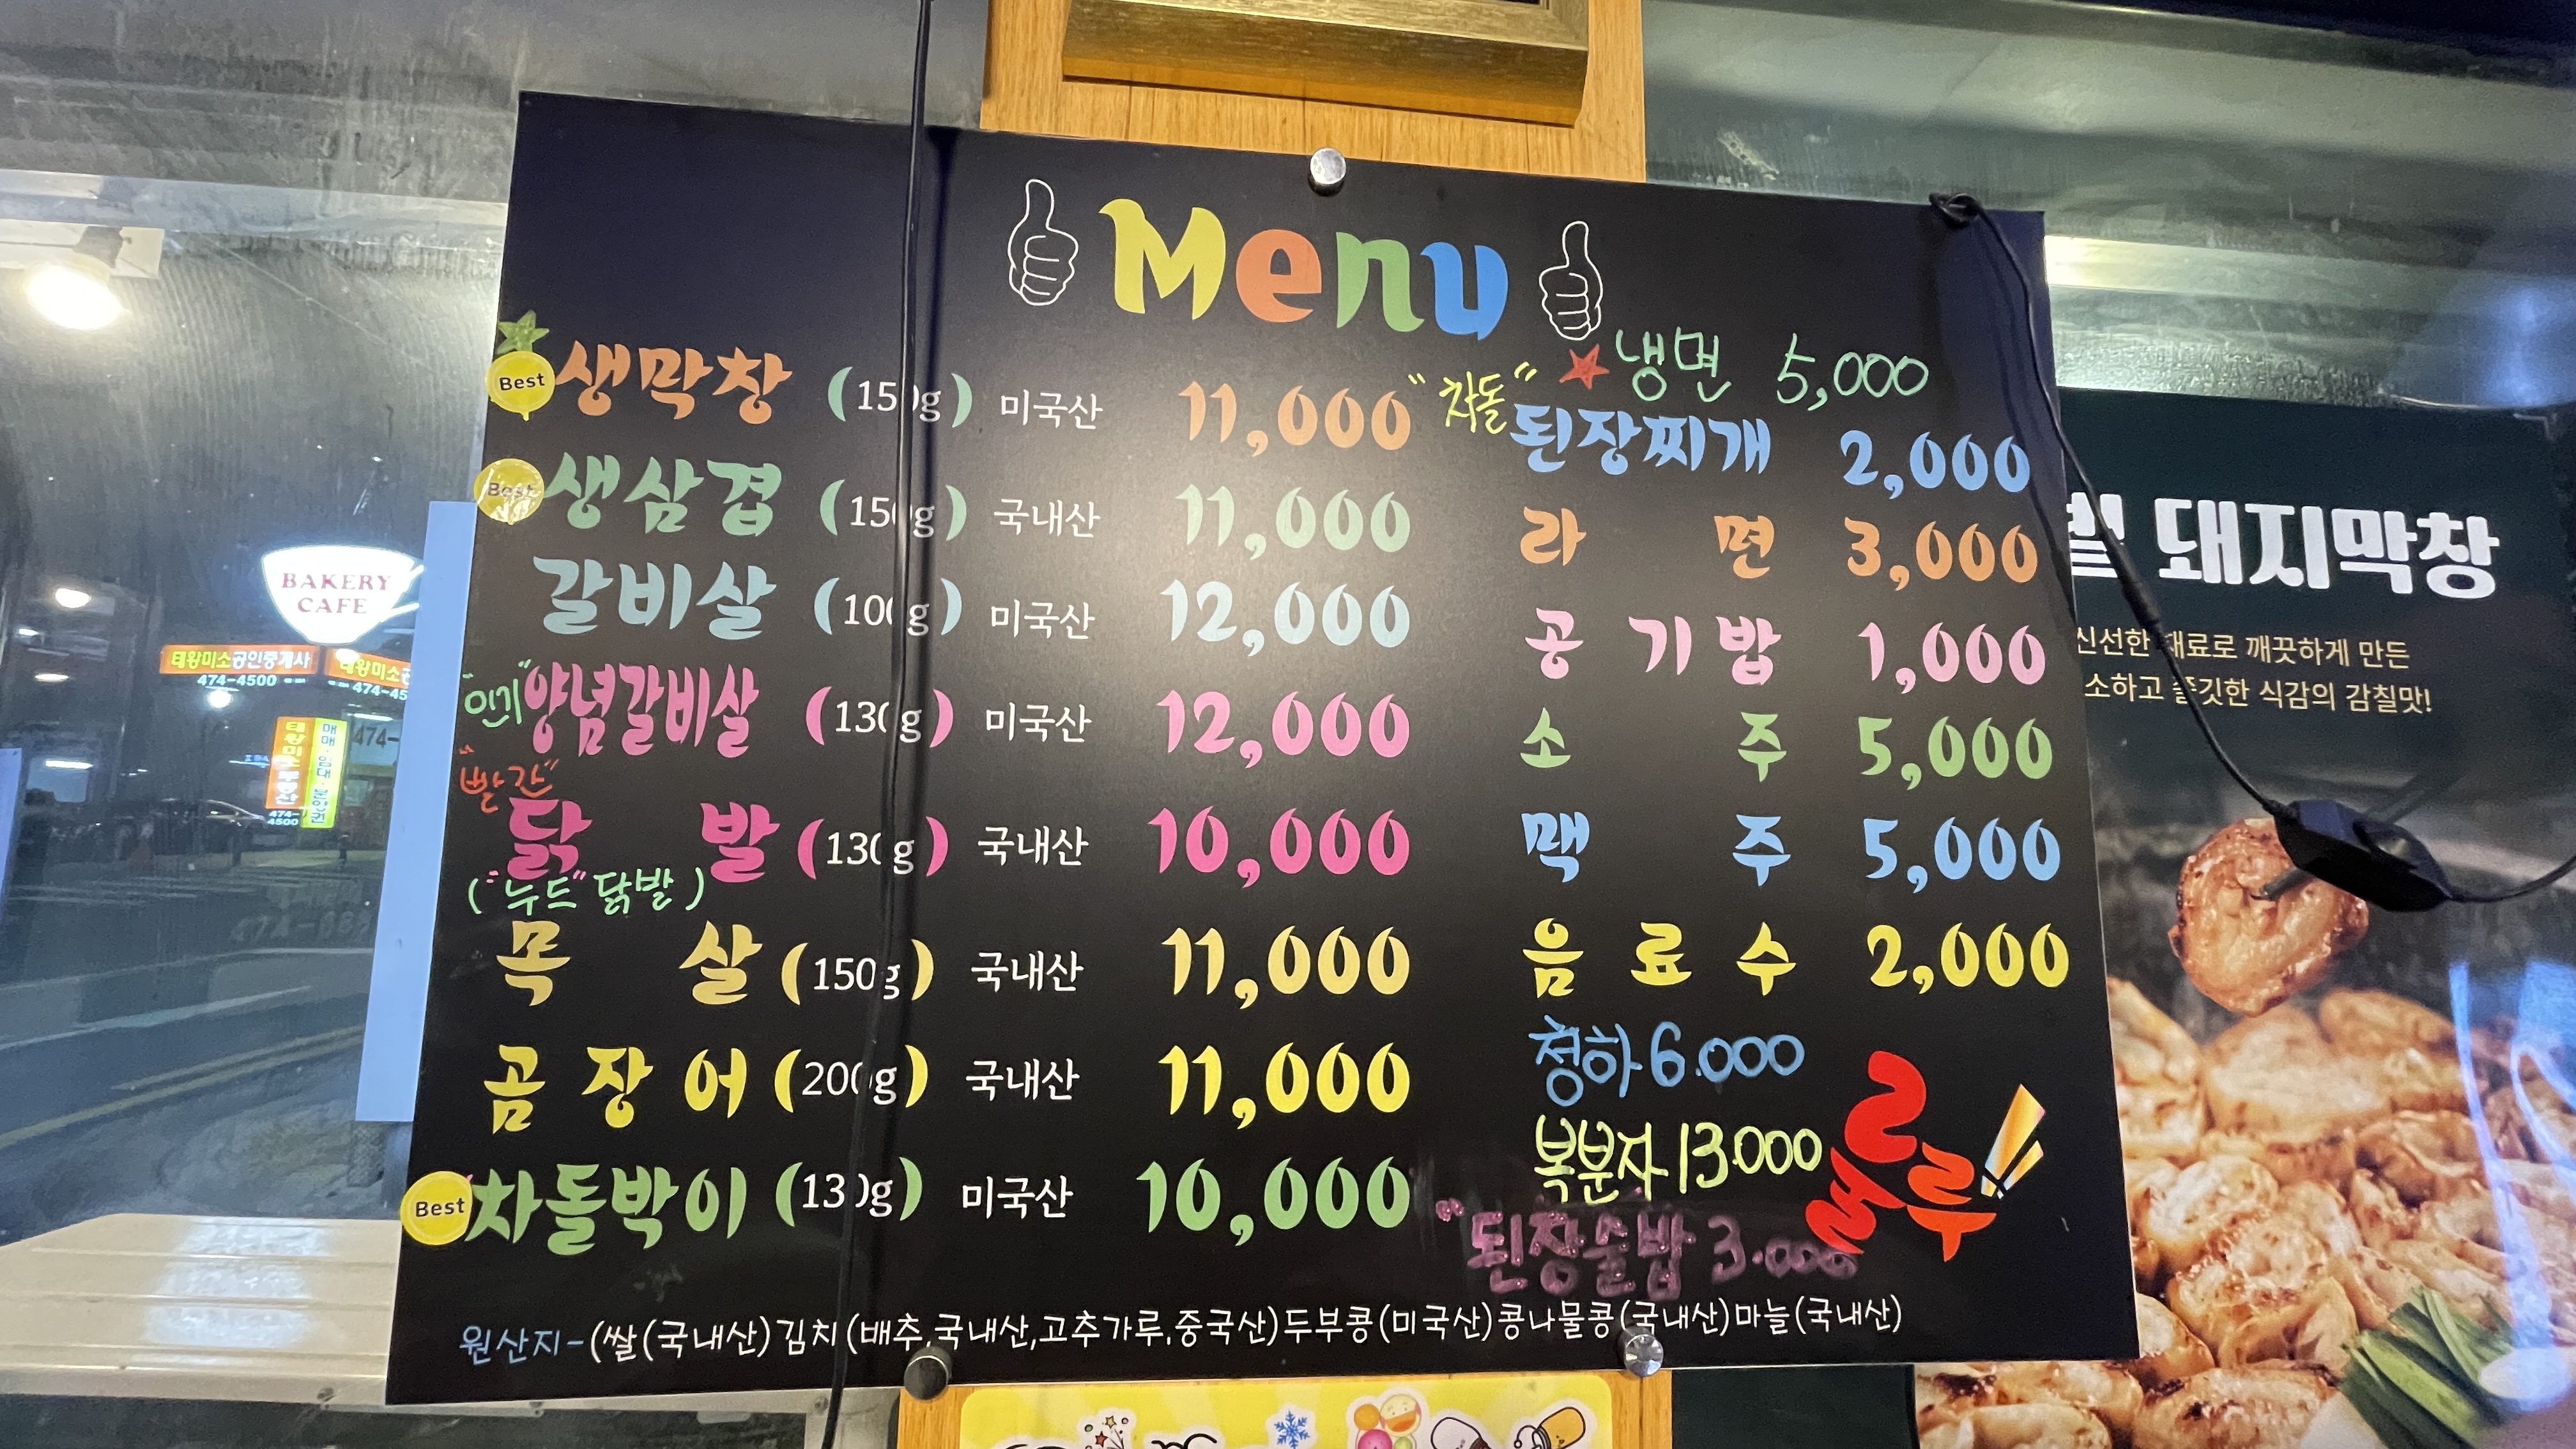 Menu
Best 생막창 (150g) 미국산 11,000
Best 생삼겹 (150g) 국내산 11,000
갈비살 (100g) 미국산 12,000
"인기" 양념갈비살 (130g) 미국산 12,000
"빨간"
닭발 (130g) 국내산 10,000
("누드" 닭발)
목살 (150g) 국내산 11,000
곰장어 (200g) 국내산 11,000
Best 차돌박이 (130g) 미국산 10,000
냉면 5,000
"차돌" 된장찌개 2,000
라면 3,000
공기밥 1,000
소주 5,000
맥주 5,000
음료수 2,000
청하 6.000
복분자 13.000
"된장술밥 3.000
룰루!!
원산지-(쌀(국내산)김치(배추,국내산,고추가루,중국산)두부콩(미국산)콩나물콩(국내산)마늘(국내산)
BAKERY
CAFE
태왕미소공인중개사
474-4500
태왕미소
474-45
매매·임대·분양권
474-
4500
돼지막창
신선한 재료로 깨끗하게 만든
소하고 쫄깃한 식감의 감칠맛!